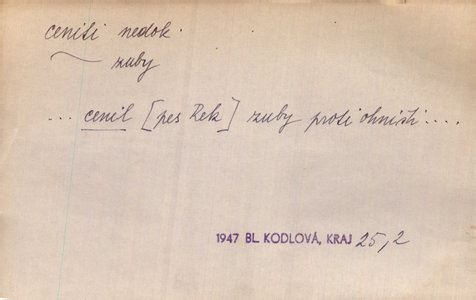 ceniti nedok.
~ zuby
... cenil [pes Rek] zuby proti ohništi ....
1947 BL. KODLOVÁ, KRAJ 25,2